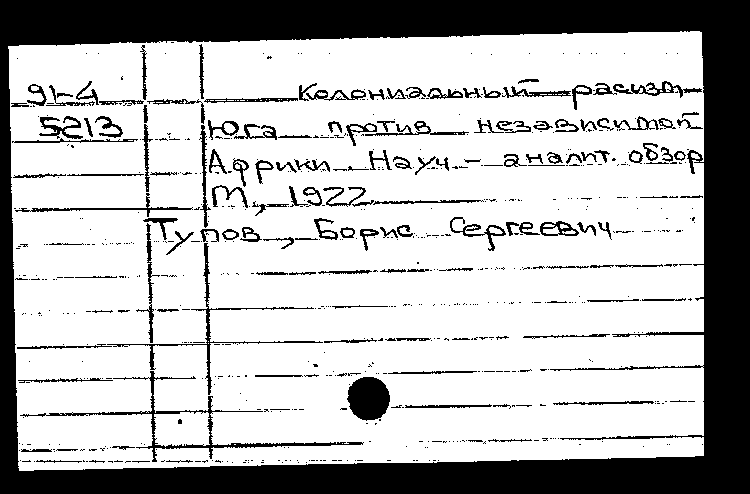 91-4 Колониальный расизм
5213 Юга против независимой
Африки. Науч-аналит. обзор
М., 1922
Тупов, Борис Сергеевич